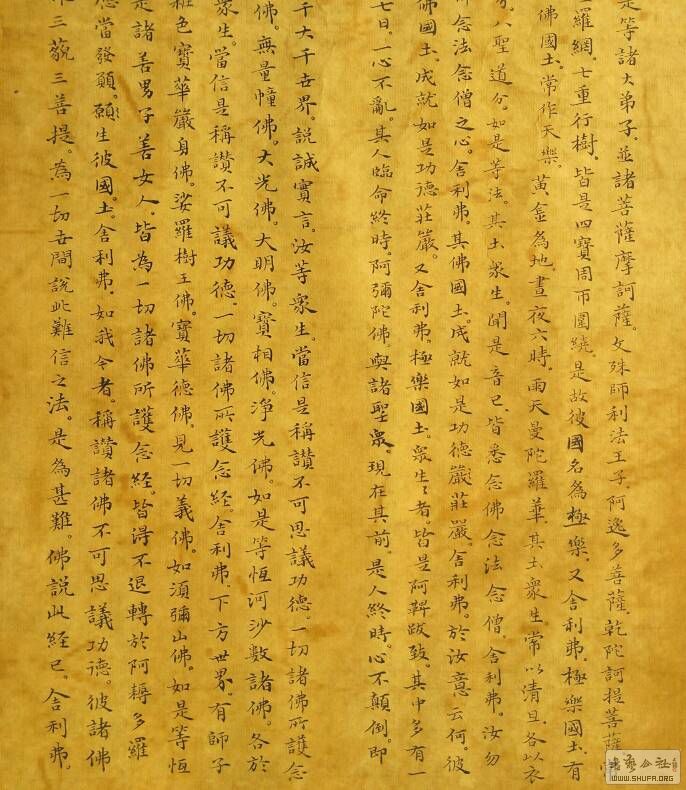 是等諸大弟子。並諸菩薩摩訶薩。文殊師利法王子。阿逸多菩薩。乾陀訶提菩薩
羅網。七重行樹。皆是四寶周帀圍繞。是故彼國名為極樂。又舍利弗。極樂國土。有
佛國土。常作天樂。黃金為地。晝夜六時。雨天曼陀羅華。其土衆生。常以清旦。各以衣
分。八聖道分。如是等法。其土衆生。聞是音已。皆悉念佛念法念僧。舍利弗。汝勿
念法念僧之心。舍利弗。其佛國土。成就如是功德嚴莊嚴。舍利弗。於汝意云何。彼
佛國土。成就如是功德莊嚴。又舍利弗。極樂國土。衆生〻者。皆是阿鞞跋致。其中多有一
七日。一心不亂。其人臨命終時。阿彌陀佛與諸聖衆。現在其前。是人終時。心不顛倒。即
千大千世界。說誠實言。汝等衆生。當信是稱讚不可思議功德。一切諸佛所護念
佛。無量幢佛。大光佛。大明佛。寶相佛。淨光佛。如是等恆河沙數諸佛。各於
衆生。當信是稱讚不可議功德。一切諸佛所護念經。舍利弗。下方世界。有師子
色寶華嚴身佛。娑羅樹王佛。寶華德佛。見一切義佛。如須彌山佛。如是等恆
是諸善男子善女人。皆為一切諸佛所護念經。皆得不退轉於阿耨多羅
應當發願。願生彼國土。舍利弗。如我今者。稱讚諸佛不可思議功德。彼諸佛
三藐三菩提。為一切世間說此難信之法。是為甚難。佛說此經已。舍利弗。
WWW.SHUFA.ORG